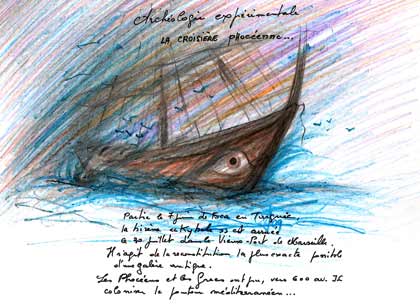 Archéologie expérimentale
LA CROISIÈRE PHOCÉENNE...
Partie le 7 juin de Foca en Turquie
la birème "Kybele" est arrivée
le 30 juillet dans le Vieux-Port de Marseille.
Il s'agit de la reconstitution la plus exacte possible
d'une galère antique.
Les Phocéens et les Grecs ont pu, vers 600 av. JC
coloniser le pourtour méditerranéen...